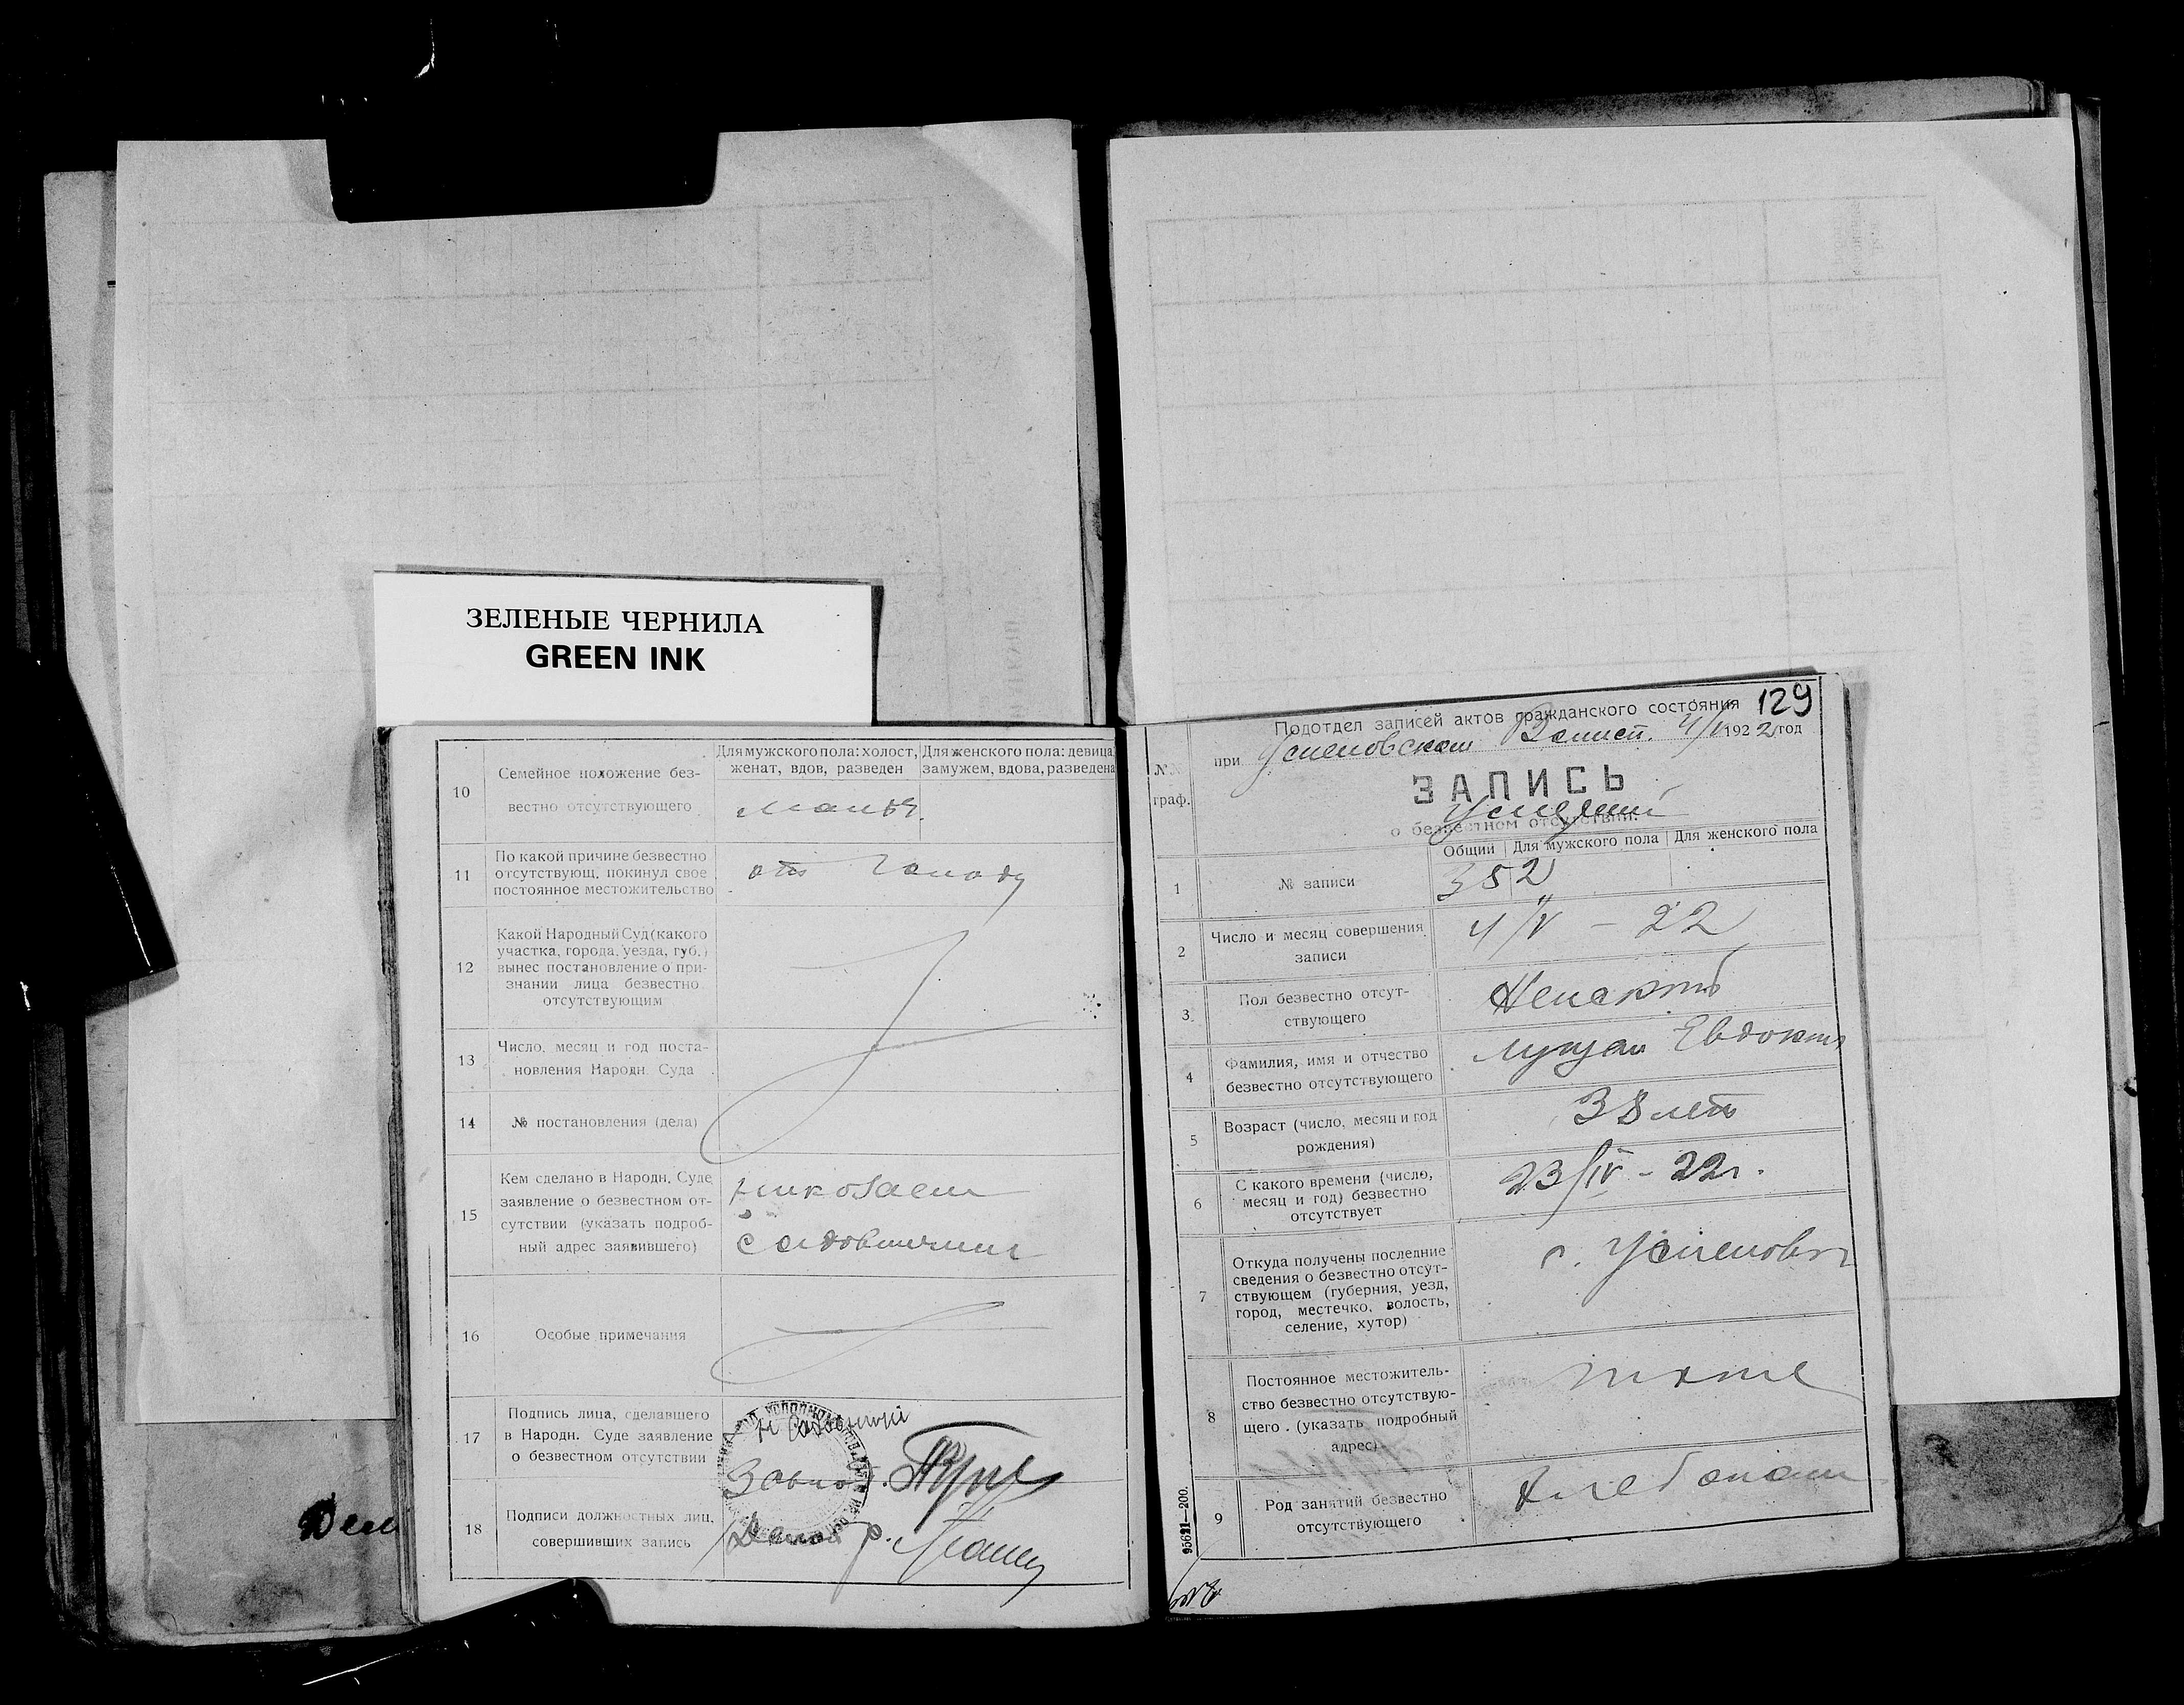 ЗЕЛЕНЫЕ ЧЕРНИЛА
GREEN INK
Для мужского пола: холост,
женат, вдов, разведен
Для женского пола: девица,
замужем, вдова, разведена
10
Семейное положение без-
вестно отсутствующего
11
По какой причине безвестно
отсутствующ. покинул свое
постоянное местожительство
от голоду
12
Какой Народный Суд (какого
участка, города, уезда, губ.)
вынес постановление о при-
знании лица безвестно
отсутствующим
13
Число, месяц и год поста-
новления Народн. Суда
14
№ постановления (дела)
15
Кем сделано в Народн. Суде
заявление о безвестном от-
сутствии (указать подроб-
ный адрес заявившего)
Николаем
16
Особые примечания
17
Подпись лица, сделавшего
в Народн. Суде заявление
о безвестном отсутствии
18
Подписи должностных лиц,
совершивших запись
129
Подотдел записей актов гражданского состояния
при Успеновском 4/V 1922 год
№№
граф.
ЗАПИСЬ
о безвестном отсутствии.
Общий
Для мужского пола
Для женского пола
1
№ записи
352
2
Число и месяц совершения
записи
4/V – 22
3
Пол безвестно отсут-
ствующего
4
Фамилия, имя и отчество
безвестно отсутствующего
5
Возраст (число, месяц и год
рождения)
38 летъ
6
С какого времени (число,
месяц и год) безвестно
отсутствует
23/IV – 22г.
7
Откуда получены последние
сведения о безвестно отсут-
ствующем (губерния, уезд,
город, местечко, волость,
селение, хутор)
с. Успеновка
8
Постоянное местожитель-
ство безвестно отсутствую-
щего. (указать подробный
адрес)
тоже
9
Род занятий безвестно
отсутствующего
95621—200.